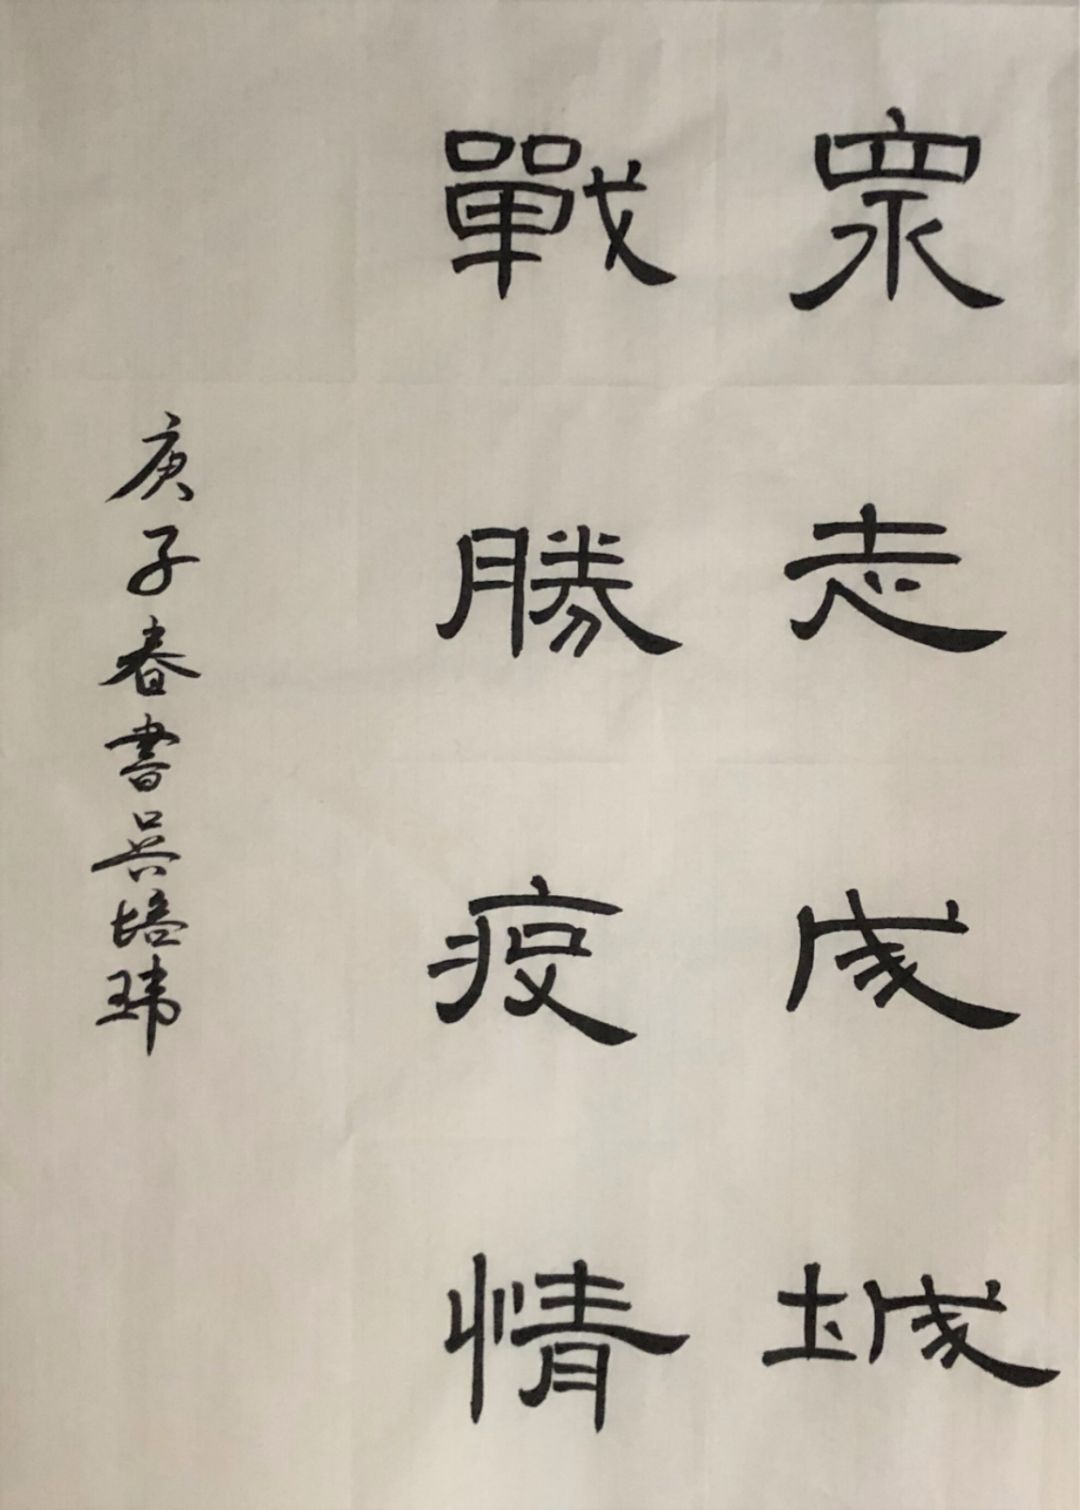 眾志成城
戰勝疫情
庚子春書吴培瑋